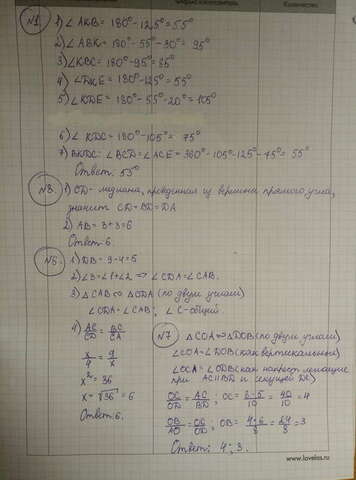 №1 1) ∠ AKB = 180° - 125° = 55°
2) ∠ ABK = 180° - 55° - 30° = 95°
3) ∠ KBC = 180° - 95° = 85°
4) ∠ DKE = 180° - 125° = 55°
5) ∠ KDE = 180° - 55° - 20° = 105°
6) ∠ KDC = 180° - 105° = 75°
7) BKDC: ∠ BCD = ∠ ACE = 360° - 105° - 125° - 75° = 55°
Ответ: 55°
№3 1) CD - медиана, проведенная из вершины прямого угла,
значит CD = BD = DA
2) AB = 3 + 3 = 6
Ответ: 6.
№5. 1) DB = 9 - 4 = 5
2) ∠3 = ∠1 + ∠2 => ∠CDA = ∠CAB.
3) △ CAB ∾ △CDA (по двум углам)
∠CDA = ∠CAB, ∠ C - общий
4) AC/CD = BC/CA
x/4 = 9/x
x² = 36
x = √36 = 6
Ответ: 6.
№7 △ COA ∾ △DOB (по двум углам)
∠COA = ∠DOB (как вертикальные)
∠OCA = ∠ODB (как накрест лежащие
при AC || BD и секущей DC)
OC/OD = AC/BD; OC = 8·5/10 = 40/10 = 4
OB/AO = OD/OC; OB = 4·6/8 = 24/8 = 3
Ответ: 4; 3.
www.lovelas.ru